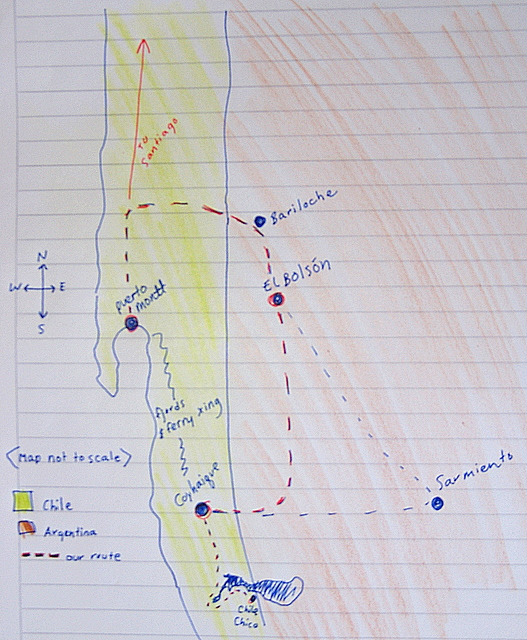 To
Santiago
Bariloche
N
W E
S
El Bolsón
puerto
montt
fjords
& ferry xing
<Map not to scale>
Sarmiento
Coyhaique
Chile
Argentina
our route
Chile
Chico